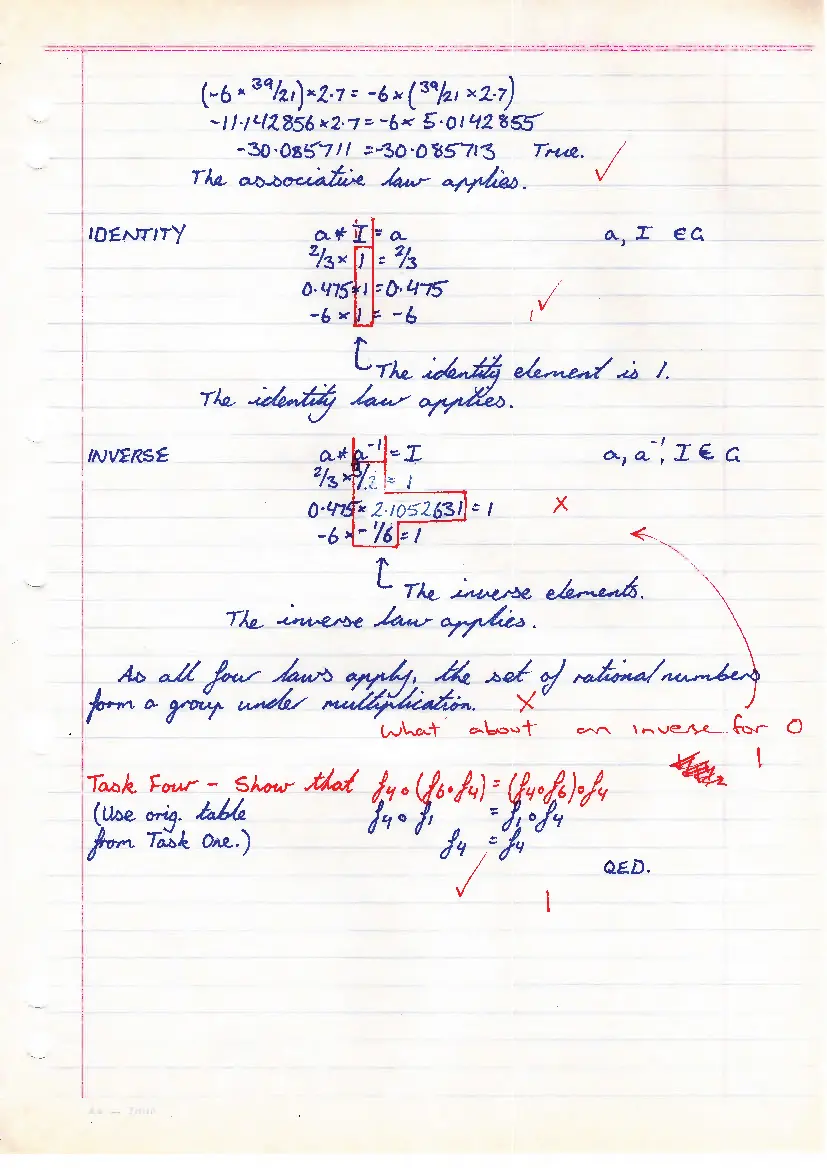 (-6 × 39/21) × 2.7 = -6 × (39/21 × 2.7)
-11.142856 × 2.7 = -6 × 5.0142855
-30.085711 = -30.085713 True. ✓
The associative law applies.
IDENTITY a * I = a a, I ∈ G
2/3 × 1 = 2/3
0.475 × 1 = 0.475
-6 × 1 = -6 ✓
The identity element is 1.
The identity law applies.
INVERSE a * a⁻¹ = I a, a⁻¹, I ∈ G
2/3 × 3/2 = 1
0.475 × 2.1052631 = 1 X
-6 × -1/6 = 1
The inverse elements.
The inverse law applies.
As all four laws apply, the set of rational numbers
form a group under multiplication. X
What about an inverse for 0
1
Task Four - Show that f4 ∘ (f6 ∘ f4) = (f4 ∘ f6) ∘ f4
(Use orig. table f4 ∘ f1 = f1 ∘ f4
from Task One.) f4 = f4
QED.
✓ 1